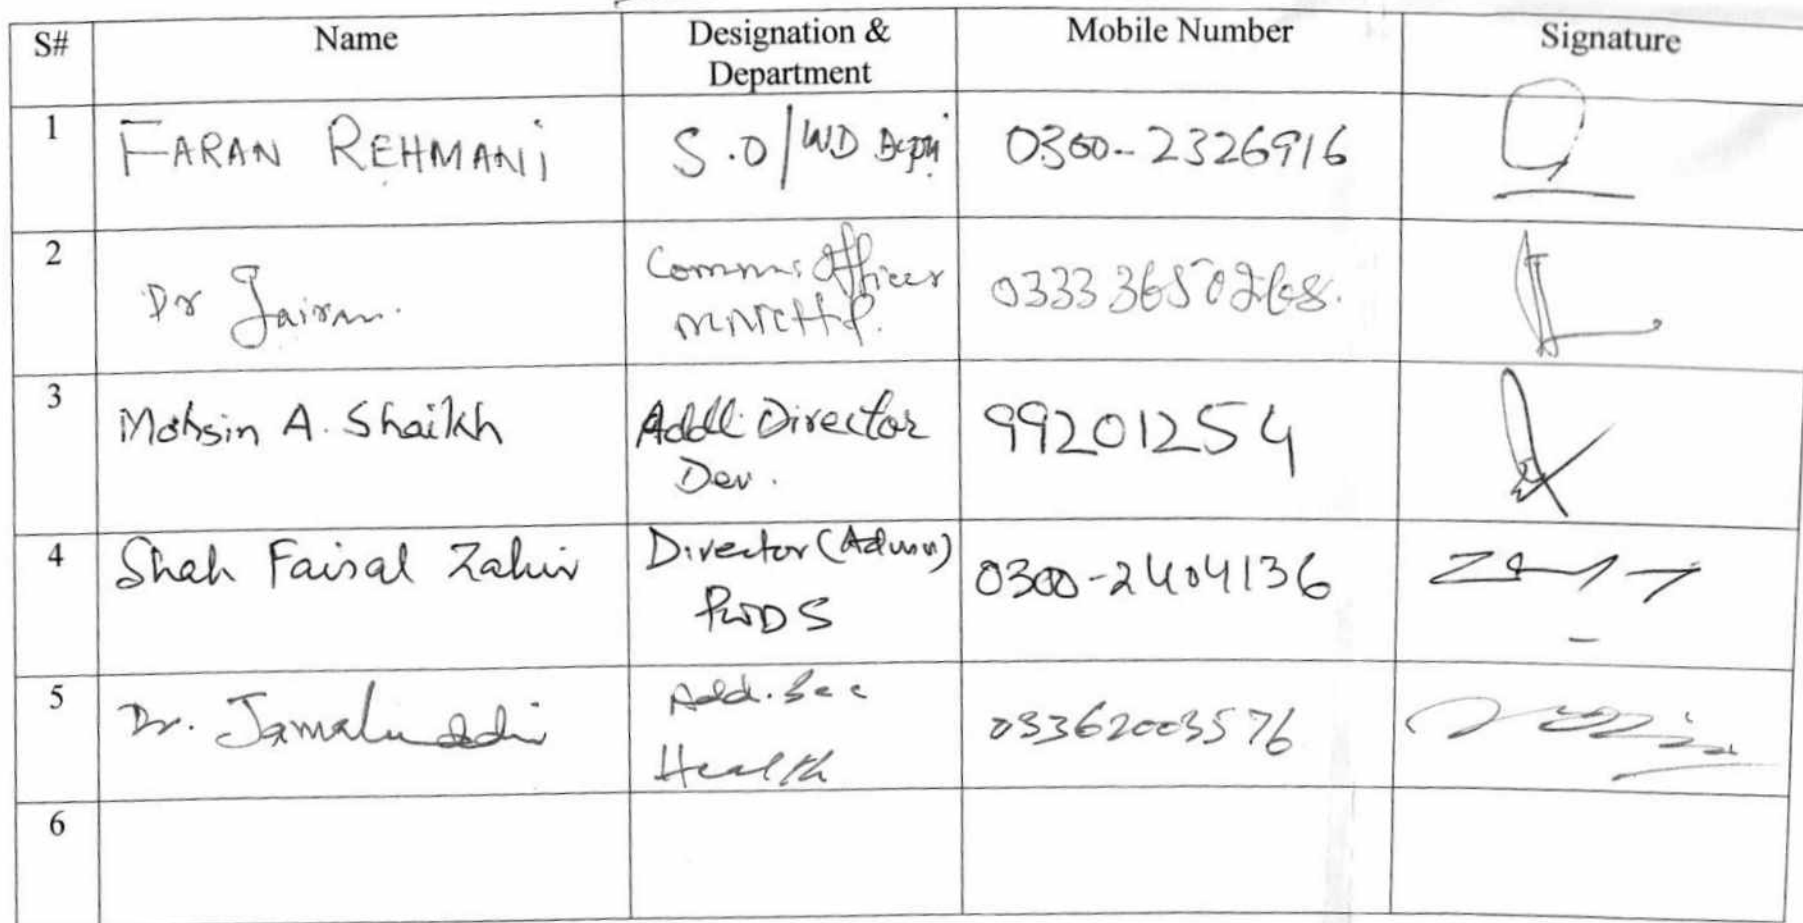 S# Name Designation & Department Mobile Number Signature
1 FARAN REHMANI S.O/WD Deptt 0300-2326916
2 Dr Jairam. Comms: Officer 03333650268.
3 Mohsin A. Shaikh Addl: Director Dev. 99201254
4 Shah Faisal Zahir Director (Admn) PWDS 0300-2404136
5 Dr. Jamaluddin Add. Sec Health 03362003576
6